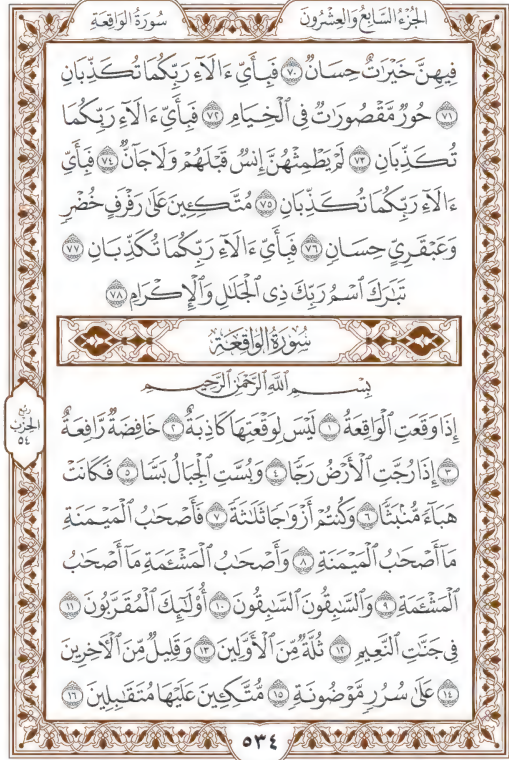 الجُزْءُ السَّابِعُ وَالعِشْرُونَ
سُورَةُ الوَاقِعَةِ
فِيهِنَّ خَيْرَٰتٌ حِسَانٌ ۝٧٠ فَبِأَيِّ ءَالَآءِ رَبِّكُمَا تُكَذِّبَانِ
۝٧١ حُورٌ مَّقْصُورَٰتٌ فِى ٱلْخِيَامِ ۝٧٢ فَبِأَيِّ ءَالَآءِ رَبِّكُمَا
تُكَذِّبَانِ ۝٧٣ لَمْ يَطْمِثْهُنَّ إِنسٌ قَبْلَهُمْ وَلَا جَآنٌّ ۝٧٤ فَبِأَيِّ
ءَالَآءِ رَبِّكُمَا تُكَذِّبَانِ ۝٧٥ مُتَّكِـِٔينَ عَلَىٰ رَفْرَفٍ خُضْرٍ
وَعَبْقَرِىٍّ حِسَانٍ ۝٧٦ فَبِأَيِّ ءَالَآءِ رَبِّكُمَا تُكَذِّبَانِ ۝٧٧
تَبَٰرَكَ ٱسْمُ رَبِّكَ ذِى ٱلْجَلَٰلِ وَٱلْإِكْرَامِ ۝٧٨
سُورَةُ الوَاقِعَةِ
بِسْمِ ٱللَّهِ ٱلرَّحْمَٰنِ ٱلرَّحِيمِ
إِذَا وَقَعَتِ ٱلْوَاقِعَةُ ۝١ لَيْسَ لِوَقْعَتِهَا كَاذِبَةٌ ۝٢ خَافِضَةٌ رَّافِعَةٌ
۝٣ إِذَا رُجَّتِ ٱلْأَرْضُ رَجًّا ۝٤ وَبُسَّتِ ٱلْجِبَالُ بَسًّا ۝٥ فَكَانَتْ
هَبَآءً مُّنۢبَثًّا ۝٦ وَكُنتُمْ أَزْوَٰجًا ثَلَٰثَةً ۝٧ فَأَصْحَٰبُ ٱلْمَيْمَنَةِ
مَآ أَصْحَٰبُ ٱلْمَيْمَنَةِ ۝٨ وَأَصْحَٰبُ ٱلْمَشْـَٔمَةِ مَآ أَصْحَٰبُ
ٱلْمَشْـَٔمَةِ ۝٩ وَٱلسَّٰبِقُونَ ٱلسَّٰبِقُونَ ۝١٠ أُو۟لَٰٓئِكَ ٱلْمُقَرَّبُونَ ۝١١
فِى جَنَّٰتِ ٱلنَّعِيمِ ۝١٢ ثُلَّةٌ مِّنَ ٱلْأَوَّلِينَ ۝١٣ وَقَلِيلٌ مِّنَ ٱلْءَاخِرِينَ
۝١٤ عَلَىٰ سُرُرٍ مَّوْضُونَةٍ ۝١٥ مُّتَّكِـِٔينَ عَلَيْهَا مُتَقَٰبِلِينَ ۝١٦
ربع
الحزب
٥٤
٥٣٤